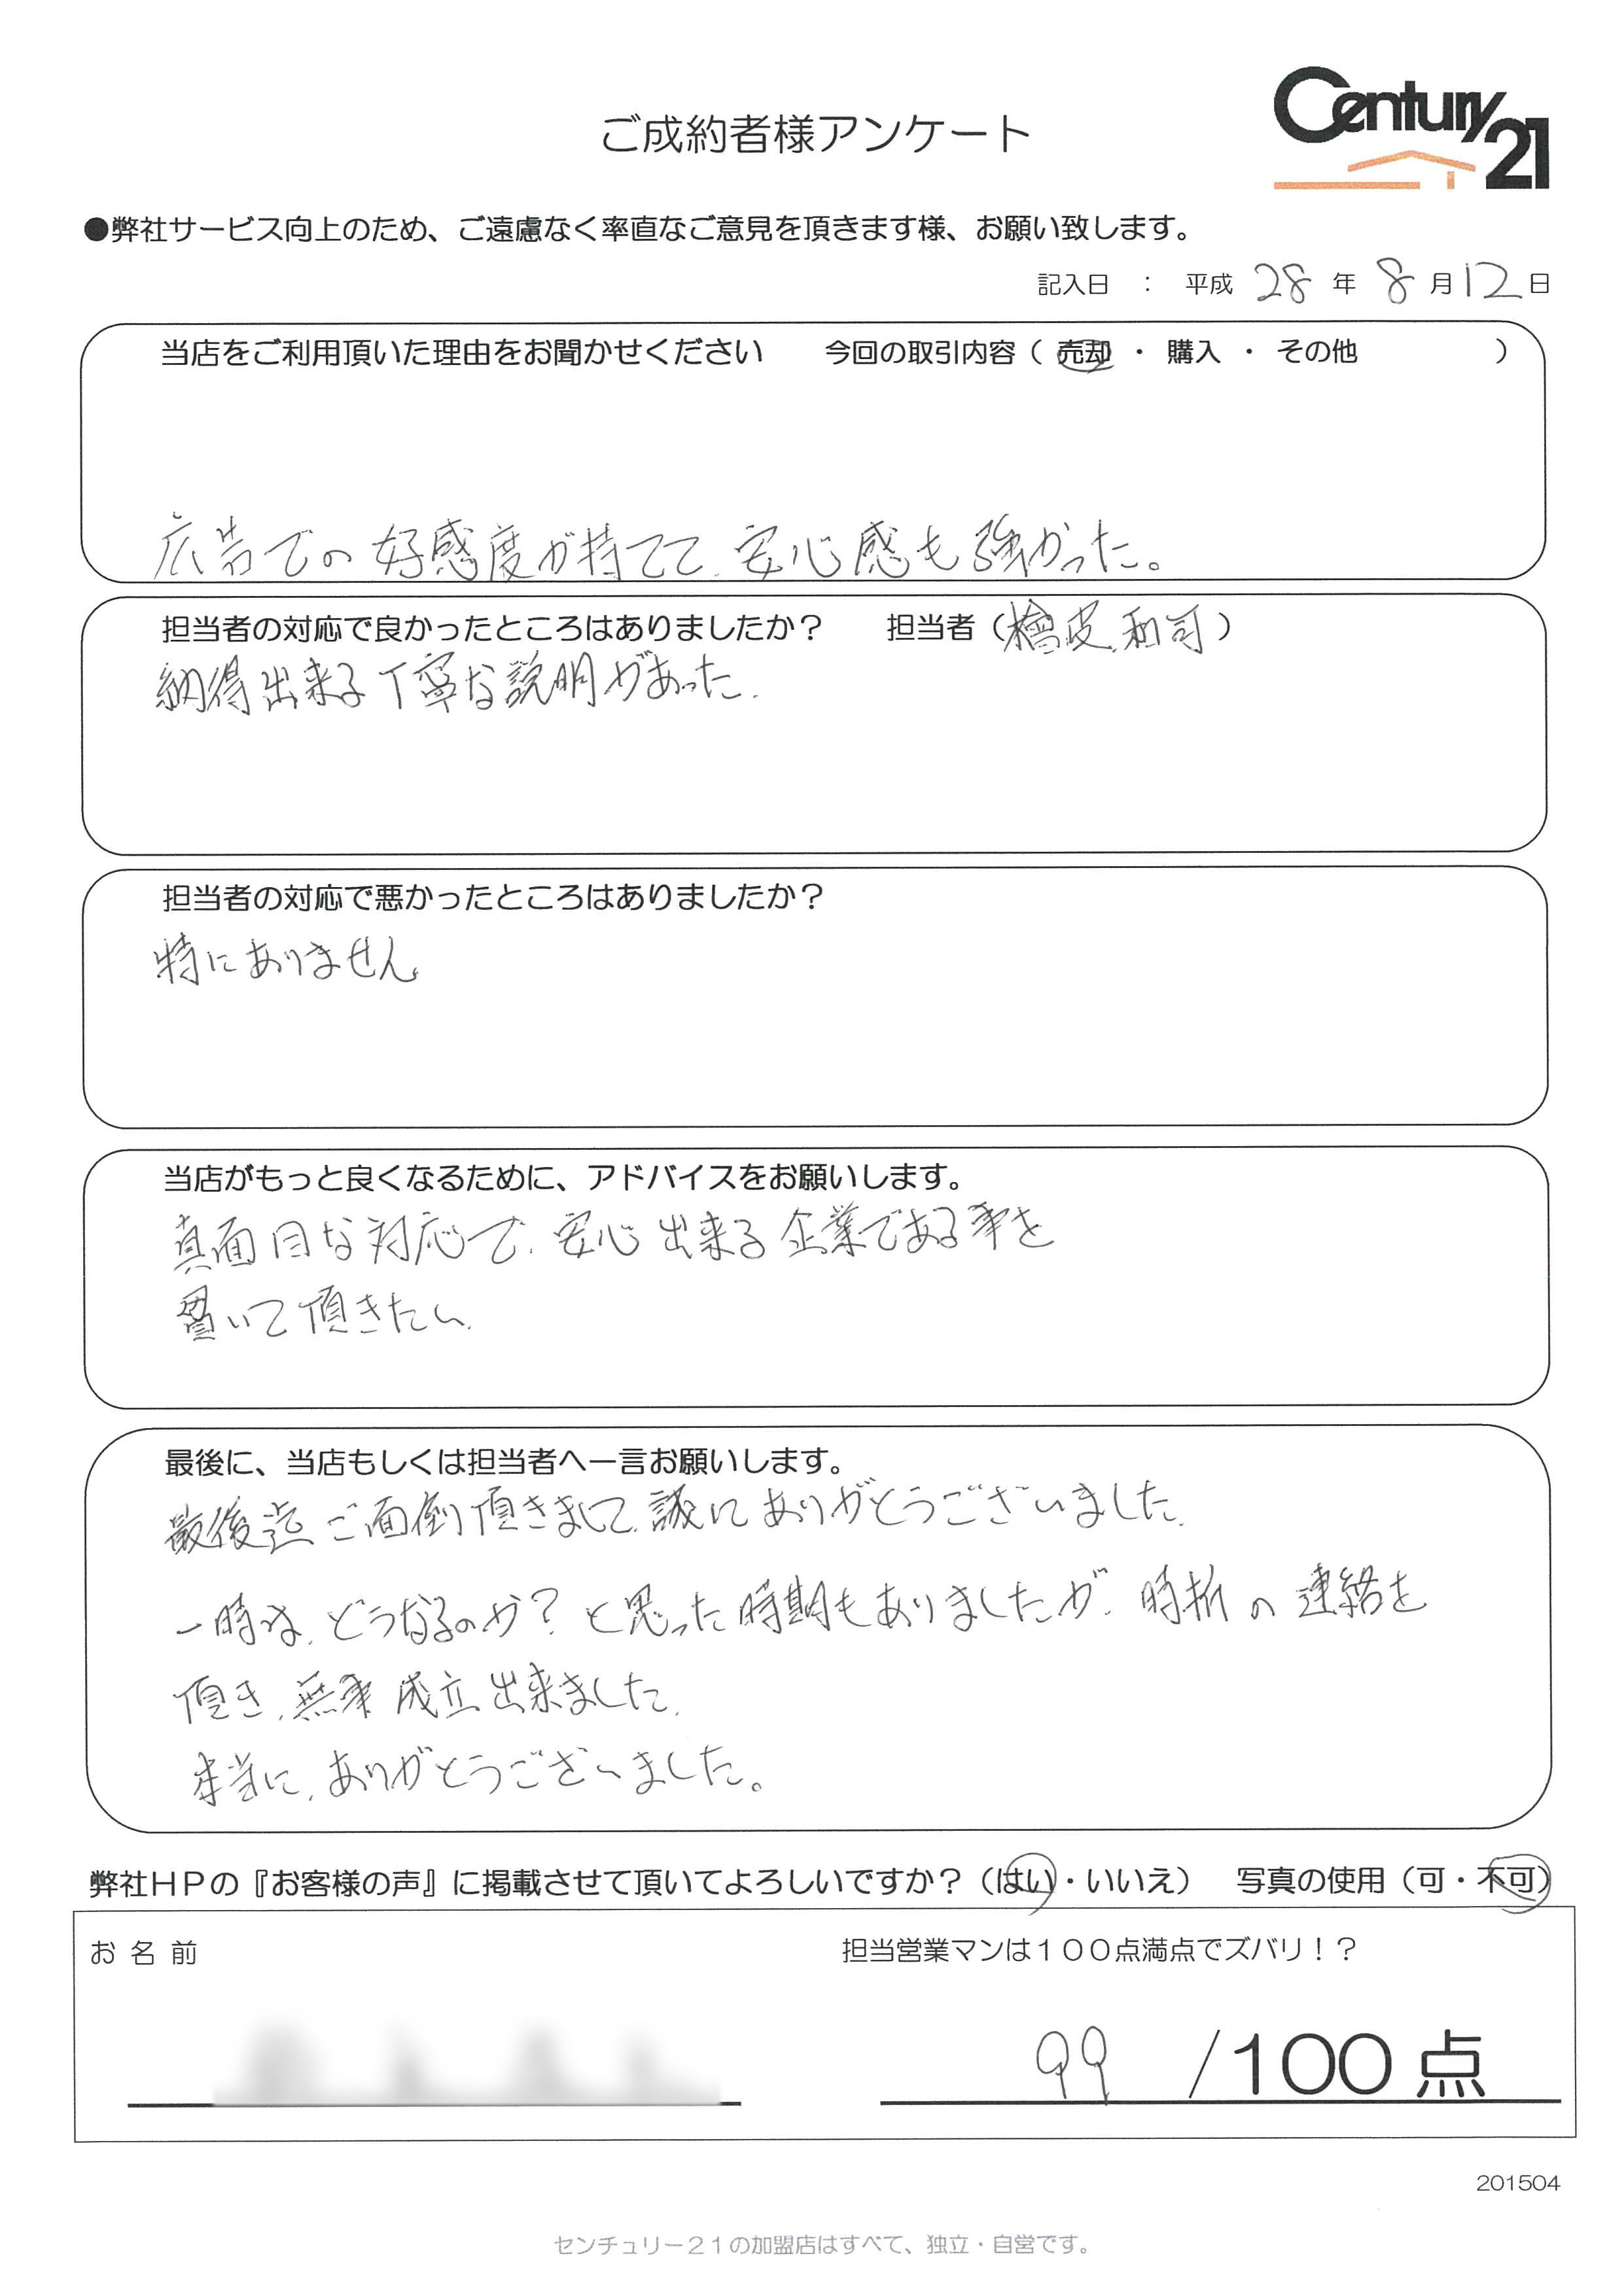 ご成約者様アンケート
Century 21
●弊社サービス向上のため、ご遠慮なく率直なご意見を頂きます様、お願い致します。
記入日 ： 平成 28 年 8 月 12 日
当店をご利用頂いた理由をお聞かせください 今回の取引内容（ 売却 ・ 購入 ・ その他 ）
広告での好感度が持てて、安心感も強かった。
担当者の対応で良かったところはありましたか？ 担当者（檜皮 和司）
納得出来る丁寧な説明があった。
担当者の対応で悪かったところはありましたか？
特にありません。
当店がもっと良くなるために、アドバイスをお願いします。
真面目な対応で、安心出来る企業である事を
貫いて頂きたい。
最後に、当店もしくは担当者へ一言お願いします。
最後迄ご面倒頂きまして、誠にありがとうございました。
一時は、どうなるのか？と思った時期もありましたが、時折の連絡を
頂き、無事成立出来ました。
本当に、ありがとうございました。
弊社ＨＰの『お客様の声』に掲載させて頂いてよろしいですか？（はい・いいえ） 写真の使用（可・不可）
お 名 前 担当営業マンは１００点満点でズバリ！？
99 /100 点
201504
センチュリー２１の加盟店はすべて、独立・自営です。